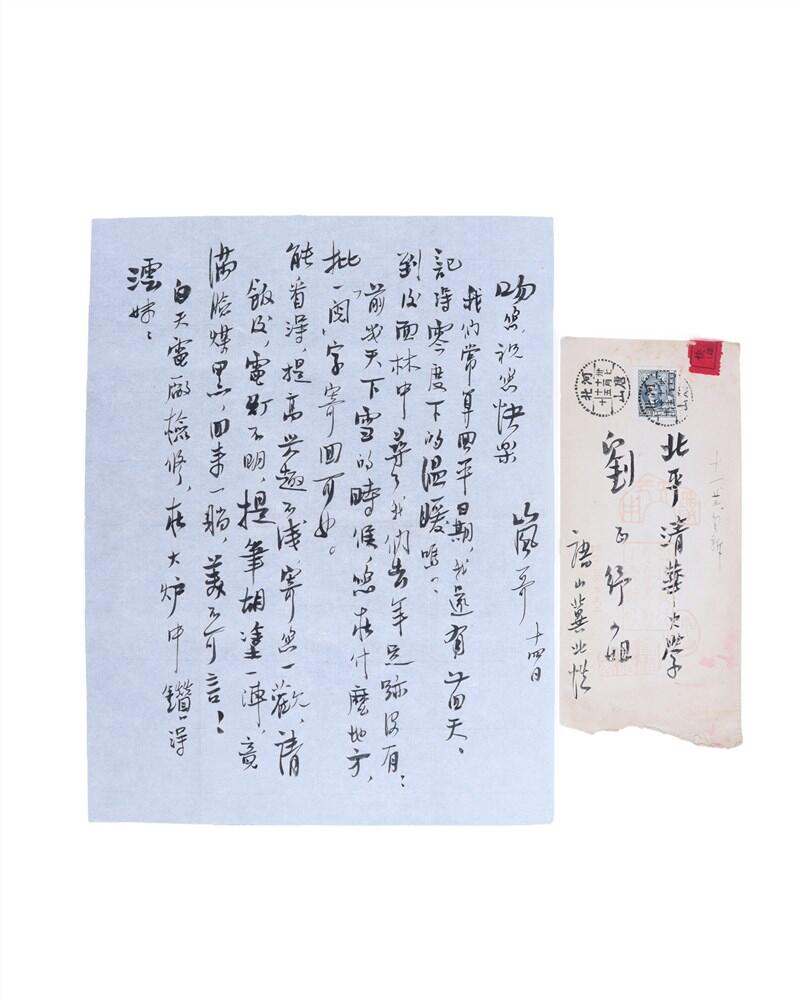 澐妹：
白天電廠檢修，在大炉中鑽得
滿臉煤黑，回来一躺，美不可言！
飯後，電灯不明，提筆胡塗一陣，竟
能看得，提高兴趣不浅，寄您一歡，請
批一閱，字寄回可也。
前幾天下雪的時候，您在什麼地方，
到後面林中尋尋我們去年足跡没有：
記得零度下的溫暖嗎？
我們常算回平日期，我還有廿四天、
吻您，祝您快樂
嵐哥 十四日
北平清華大學
劉 小姐
唐山冀北
河北
唐山